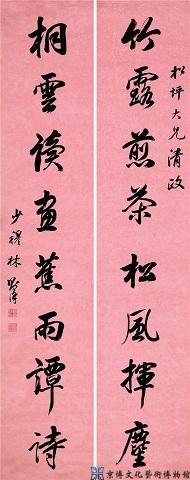 松坪大兄清政
竹露煎茶松風揮麈
桐雲讀畫蕉雨譚詩
少穆林則徐
京博文化藝術博物館